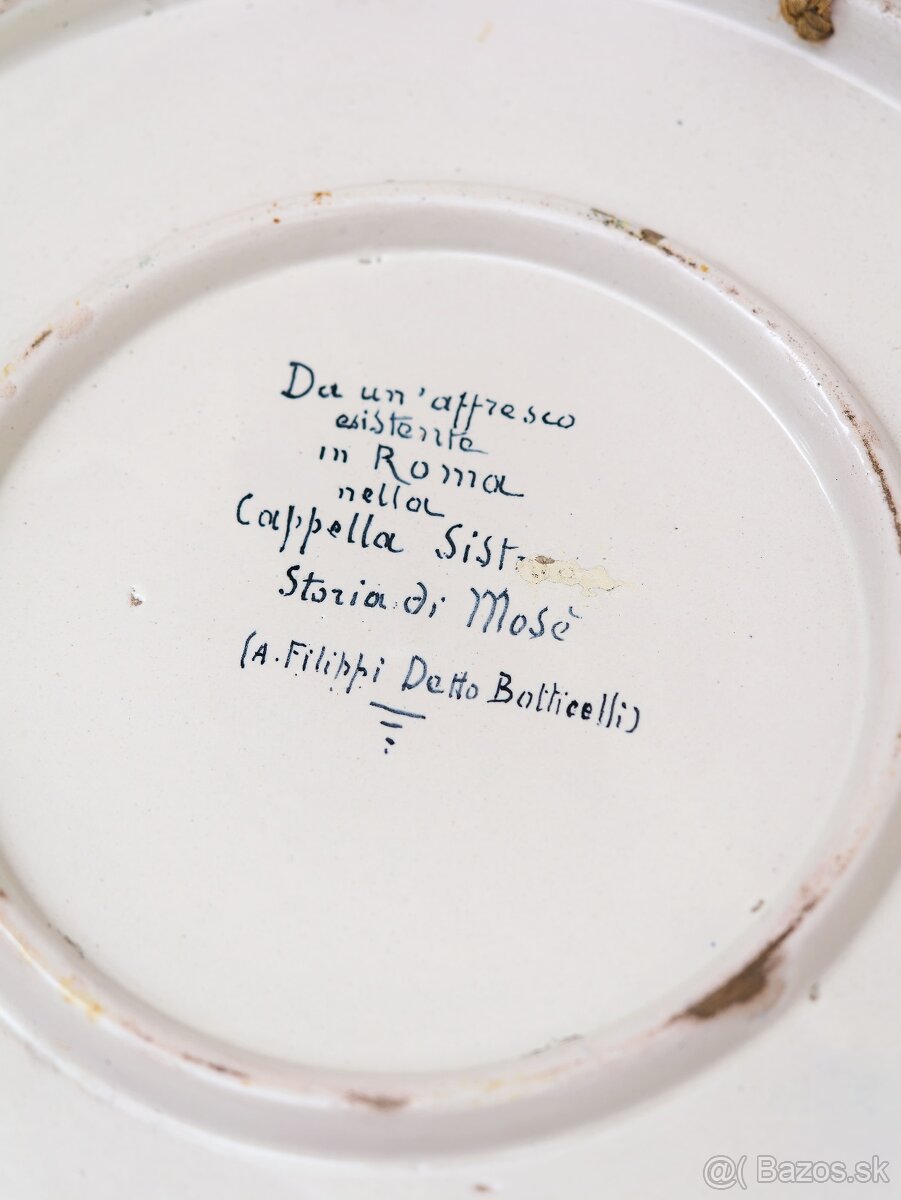 Da un'affresco
esistente
in Roma
nella
Cappella Sist
Storia di Mosè
(A. Filippi Detto Botticelli)
@( Bazos.sk